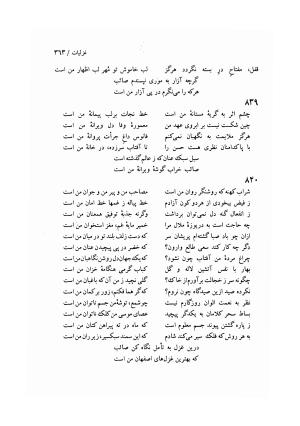 غزلیات / ۳۶۳
قفل، مفتاح در بسته نگردد هرگز لب خاموش تو مُهر لب اظهار من است
گرچه آزار به موری نپسندم صائب
هرکه را می‌نگرم در پی آزار من است
۸۳۹
چشم اثر به گریهٔ مستانهٔ من است خط نجات برلب پیمانهٔ من است
چین شکست نیست بر ابروی عهد من معمورهٔ وفا دل ویرانهٔ من است
هرگز ملایمت به نگهبان نمی‌کنم فانوس داغ جرأت پروانهٔ من است
با پاکدامنان نظری هست حسن را تا آفتاب سرزده، در خانهٔ من است
سیل سبکعنان که ز عالم گذشته است
صائب خراب گوشهٔ ویرانهٔ من است
۸۴۰
شراب کهنه که روشنگر روان من است مصاحب من و پیر من و جوان من است
ز فیض بیخودی از هردو کون آزادم خط پیاله ز غمها خط امان من است
ز انفعال گنه دل نمی‌توان برداشت وگرنه جاذبهٔ توفیق همعنان من است
چه حاجت است به دریوزهٔ ملال مرا خمیر مایهٔ غم، مغز استخوان من است
ازان چو باد صبا گشته‌ام پریشان سر که دست زلف بلند تو در میان من است
دگر چه کار کند سعی طالع وارون؟ که خضر در پی گمراهی‌ من است
چراغ مردهٔ من آفتاب چون نشود؟ که یک جهان دل روشن نگاهبان من است
بهار با نفس آتشین لاله و گل کباب گرمی هنگامهٔ خزان من است
چگونه سر ز خجالت برآورم از خاک؟ گلی نچید ز من آن که باغبان من است
نکرده صید ازین صیدگاه چون نروم؟ که گر هما فکنم، زور بر کمان من است
نظر به نعمت الوان روزگارم نیست چو شمع، توشهٔ من جسم ناتوان من است
بساط سحر کلامان به یکدگر پیچید عصای موسی من کلک ناتوان من است
ز پاره گشتن پیوند جسم معلوم است که ماه در ته پیراهن کتان من است
به هر روش که فلک سیر میکند شادم که این سمند سبکسیر، زیر ران من است
درین غزل به تأمل نگاه کن صائب
که بهترین غزل‌های اصفهان من است